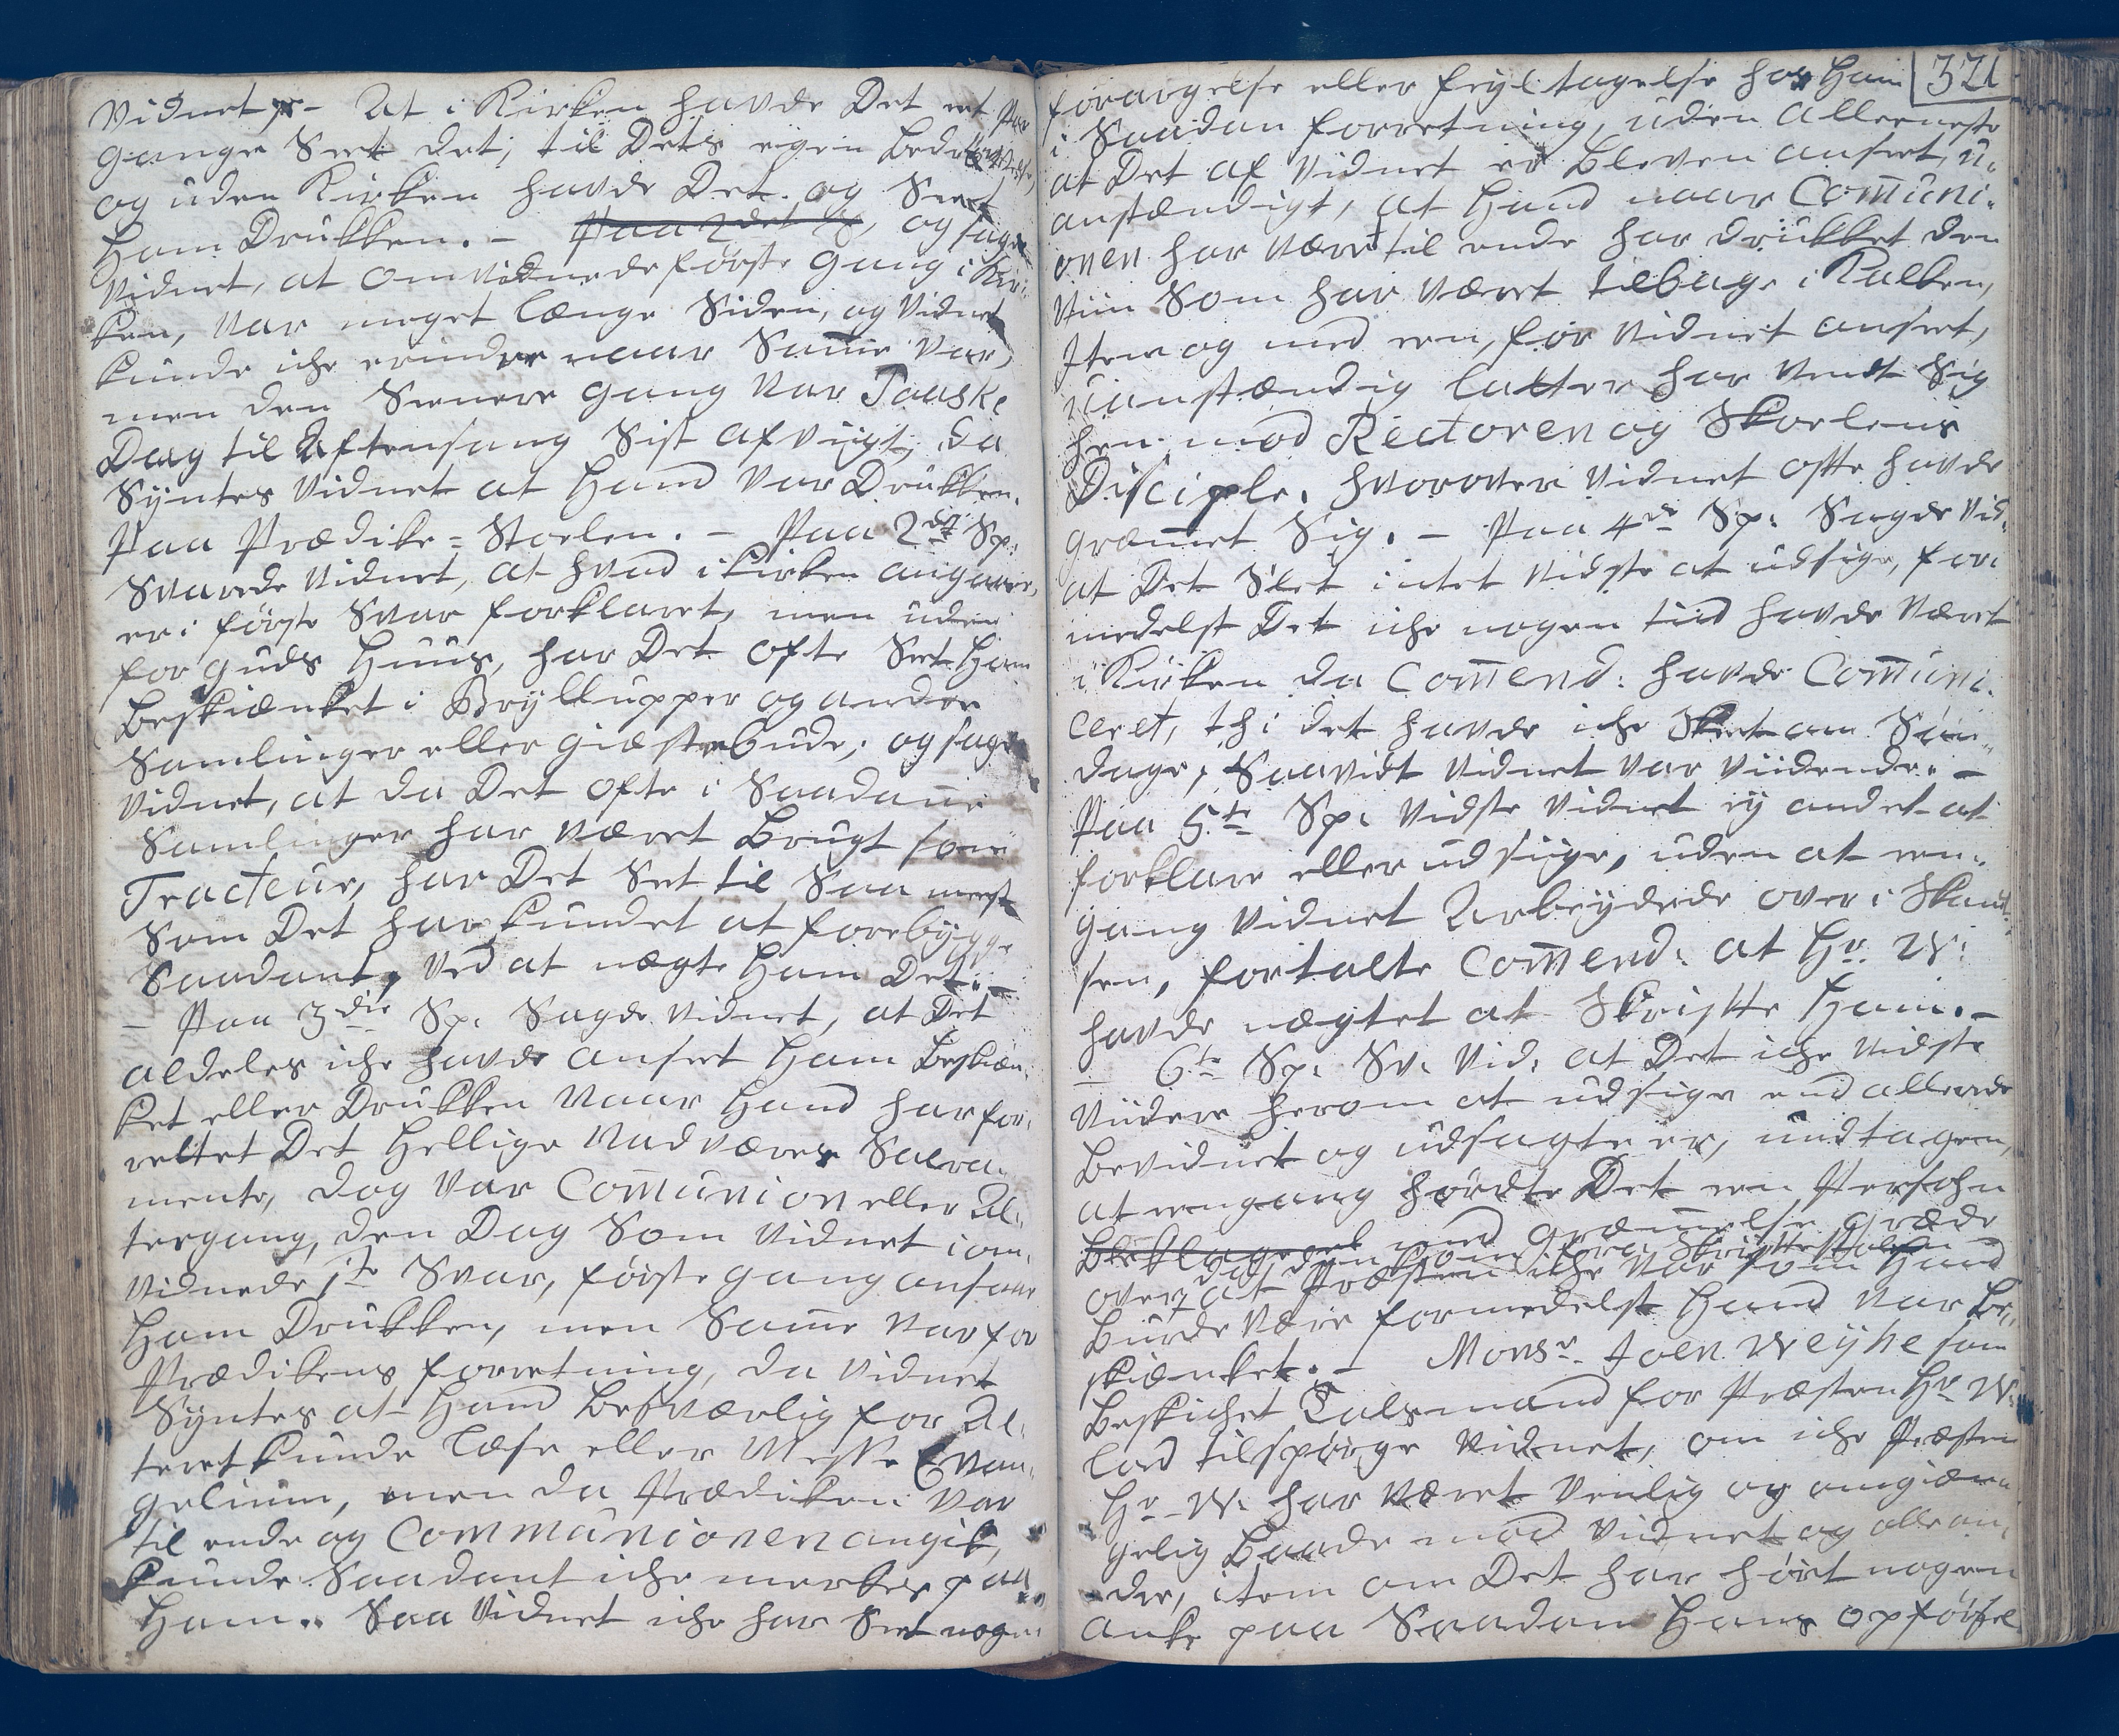 Vidnet - At i Kirken havde Det eet Par
gange Seet det, til Dets egen Bedrøvelse,
og uden Kirken havde Det og Seet
Ham Drukken. - Paa 2det Sp, og sagde
Vidnet, at omvidnede første gang i Kir-
ken, var meget længe Siden, og Vidnet
kunde iche erindre naar Samme Var,
men den Seenere gang Var Paaske
Dag til Aftensang Sist afvigt, da
Syntes Vidnet at Hand Var Drukken
Paa Prædike-Stoelen. - Paa 2det Sp:
Svarede Vidnet, at hvad i Kirken angaaer,
er i første Svar forklaret, men uden
for Guds Huus, har Det ofte Seet Ham
Beskiænket i Bryllupper og andre
Samlinger eller giæstebude, og sagde
Vidnet, at da Det ofte i Saadanne
Samlinger har Været Brugt som
Tracteur, har Det Set til Saa meest
Som Det har kundet at forebygge
Saadant, Ved at nægte Ham Det.-
- Paa 3die Sp: Sagde Vidnet, at Det
aldeles iche havde anseet Ham Beskiæn-
ket eller Drukken Naar Hand har for-
rettet Det Hellige Nadværes Sacra-
mente, dog Var Communion eller Al-
tergang, den Dag Som Vidnet i om-
vidnede 1te Svar, første gang ansaae
Ham Drukken, men Samme Var for
Prædikens forretning, da Vidnet
Syntes at Hand Besværlig for Al-
teret kunde læse eller Messe Evan-
gelium, men da Prædiken Var
til ende og Communionen angik,
kunde Saadant iche merkes paa
Ham. Saa Vidnet iche har Seet nogen
321
forargelse eller feyltagelse hos Ham
i Saadan forretning, uden alleeneste
at Det af Vidnet er Bleven anseet, u-
anstændigt, at Hand naar Communi-
onen har Været til ende har drukket den
Viin Som har Været tilbage i Kalken,
Item og med een, for Vidnet anseet,
uanstændig latter har Vendt Sig
hen mod Rectoren og Skoelens
Disciple, hvorover Vidnet ofte havde
græmmet Sig. - Paa 4de Sp: Sagde Vid:
at Det Slet intet Vidste at udsige, for-
medelst Det iche nogen tiid havde Været
i Kirken da Commend: havde Communi-
ceret, thi det havde iche Skeet om Søn-
dage, Saavidt Vidnet Var Viidende. -
Paa 5te Sp: Vidste Vidnet ey andet at
forklare eller udsiige, uden at een-
gang Vidnet Arbeydede over i Skand-
sen, fortalte Commend: at Hr. W:
havde nægtet at Skrifte Ham. -
- 6te Sp: Sv: Vid: at Det iche Vidste
Viidere herom at udsige end allerede
Bevidnet og udsagt er, undtagen,
at eengang hørdte Det een Persohn
Beklagend med græmmelse græde
da den kom fra Skrifte Stolen
over at Præsten iche Var som Hand
Burde Være formedelst Hand Var Be-
skiænket. - Monsr. Joen Weyhe som
Beskichet Talsmand for Præsten Hr. W:
lod tilspørge Vidnet, om iche Præsten
Hr. W: har Været Venlig og omgiæn-
gelig Baade mod Vidnet og alle an-
dre, item om Det har hørt nogen
anke paa Saadan Hans opførsel